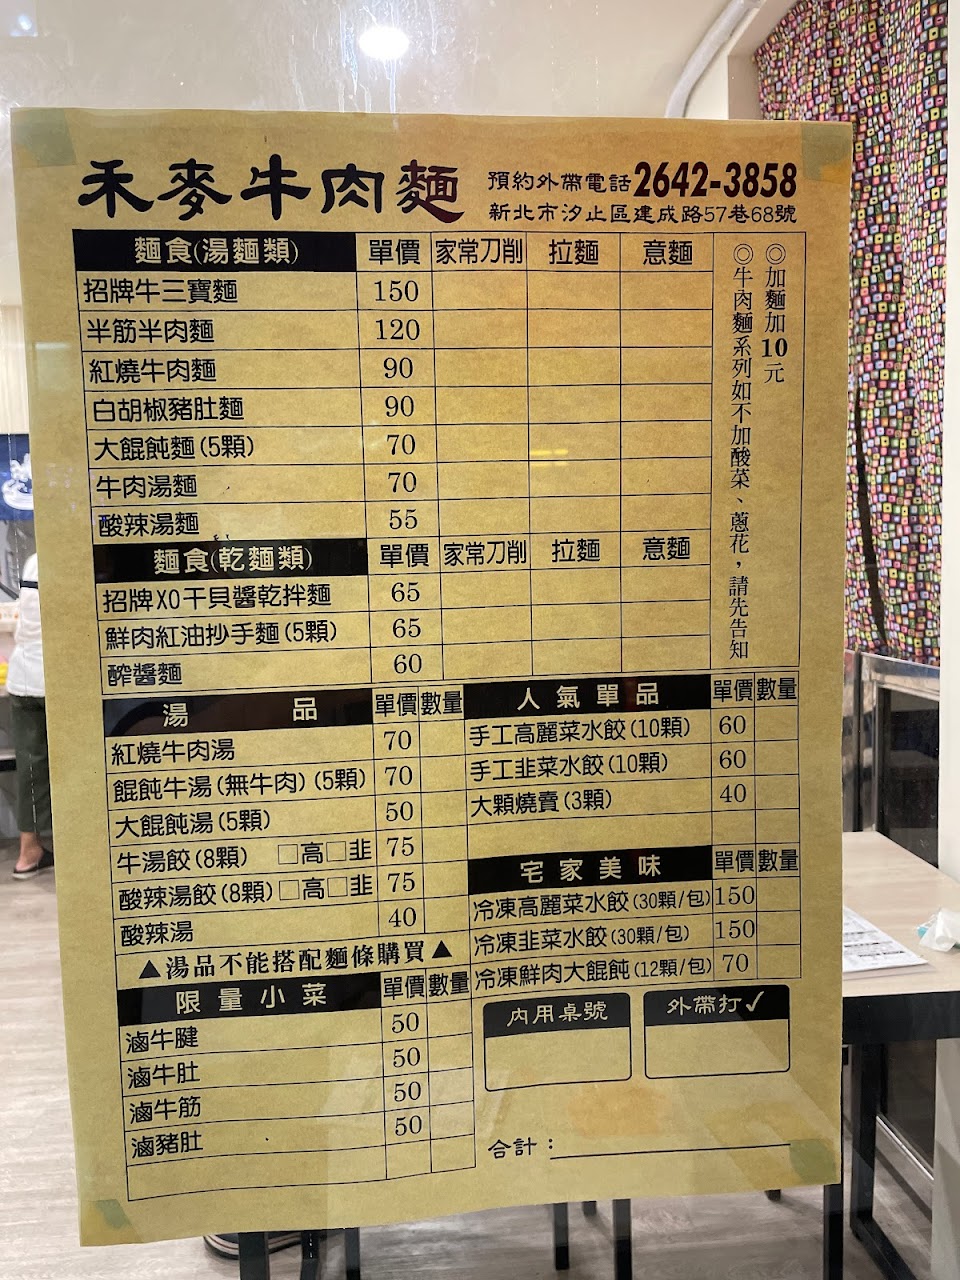 禾麥牛肉麵 預約外帶電話2642-3858
新北市汐止區建成路57巷68號
麵食(湯麵類) 單價 家常刀削 拉麵 意麵
招牌牛三寶麵 150
半筋半肉麵 120
紅燒牛肉麵 90
白胡椒豬肚麵 90
大餛飩麵(5顆) 70
牛肉湯麵 70
酸辣湯麵 55
麵食(乾麵類) 單價 家常刀削 拉麵 意麵
招牌XO干貝醬乾拌麵 65
鮮肉紅油抄手麵(5顆) 65
醡醬麵 60
◎加麵加10元
◎牛肉麵系列如不加酸菜、蔥花，請先告知
湯品 單價 數量
紅燒牛肉湯 70
餛飩牛湯(無牛肉)(5顆) 70
大餛飩湯(5顆) 50
牛湯餃(8顆) □高□韭 75
酸辣湯餃(8顆)□高□韭 75
酸辣湯 40
▲湯品不能搭配麵條購買▲
限量小菜 單價 數量
滷牛腱 50
滷牛肚 50
滷牛筋 50
滷豬肚 50
人氣單品 單價 數量
手工高麗菜水餃(10顆) 60
手工韭菜水餃(10顆) 60
大顆燒賣(3顆) 40
宅家美味 單價 數量
冷凍高麗菜水餃(30顆/包) 150
冷凍韭菜水餃(30顆/包) 150
冷凍鮮肉大餛飩(12顆/包) 70
內用桌號 外帶打✓
合計：